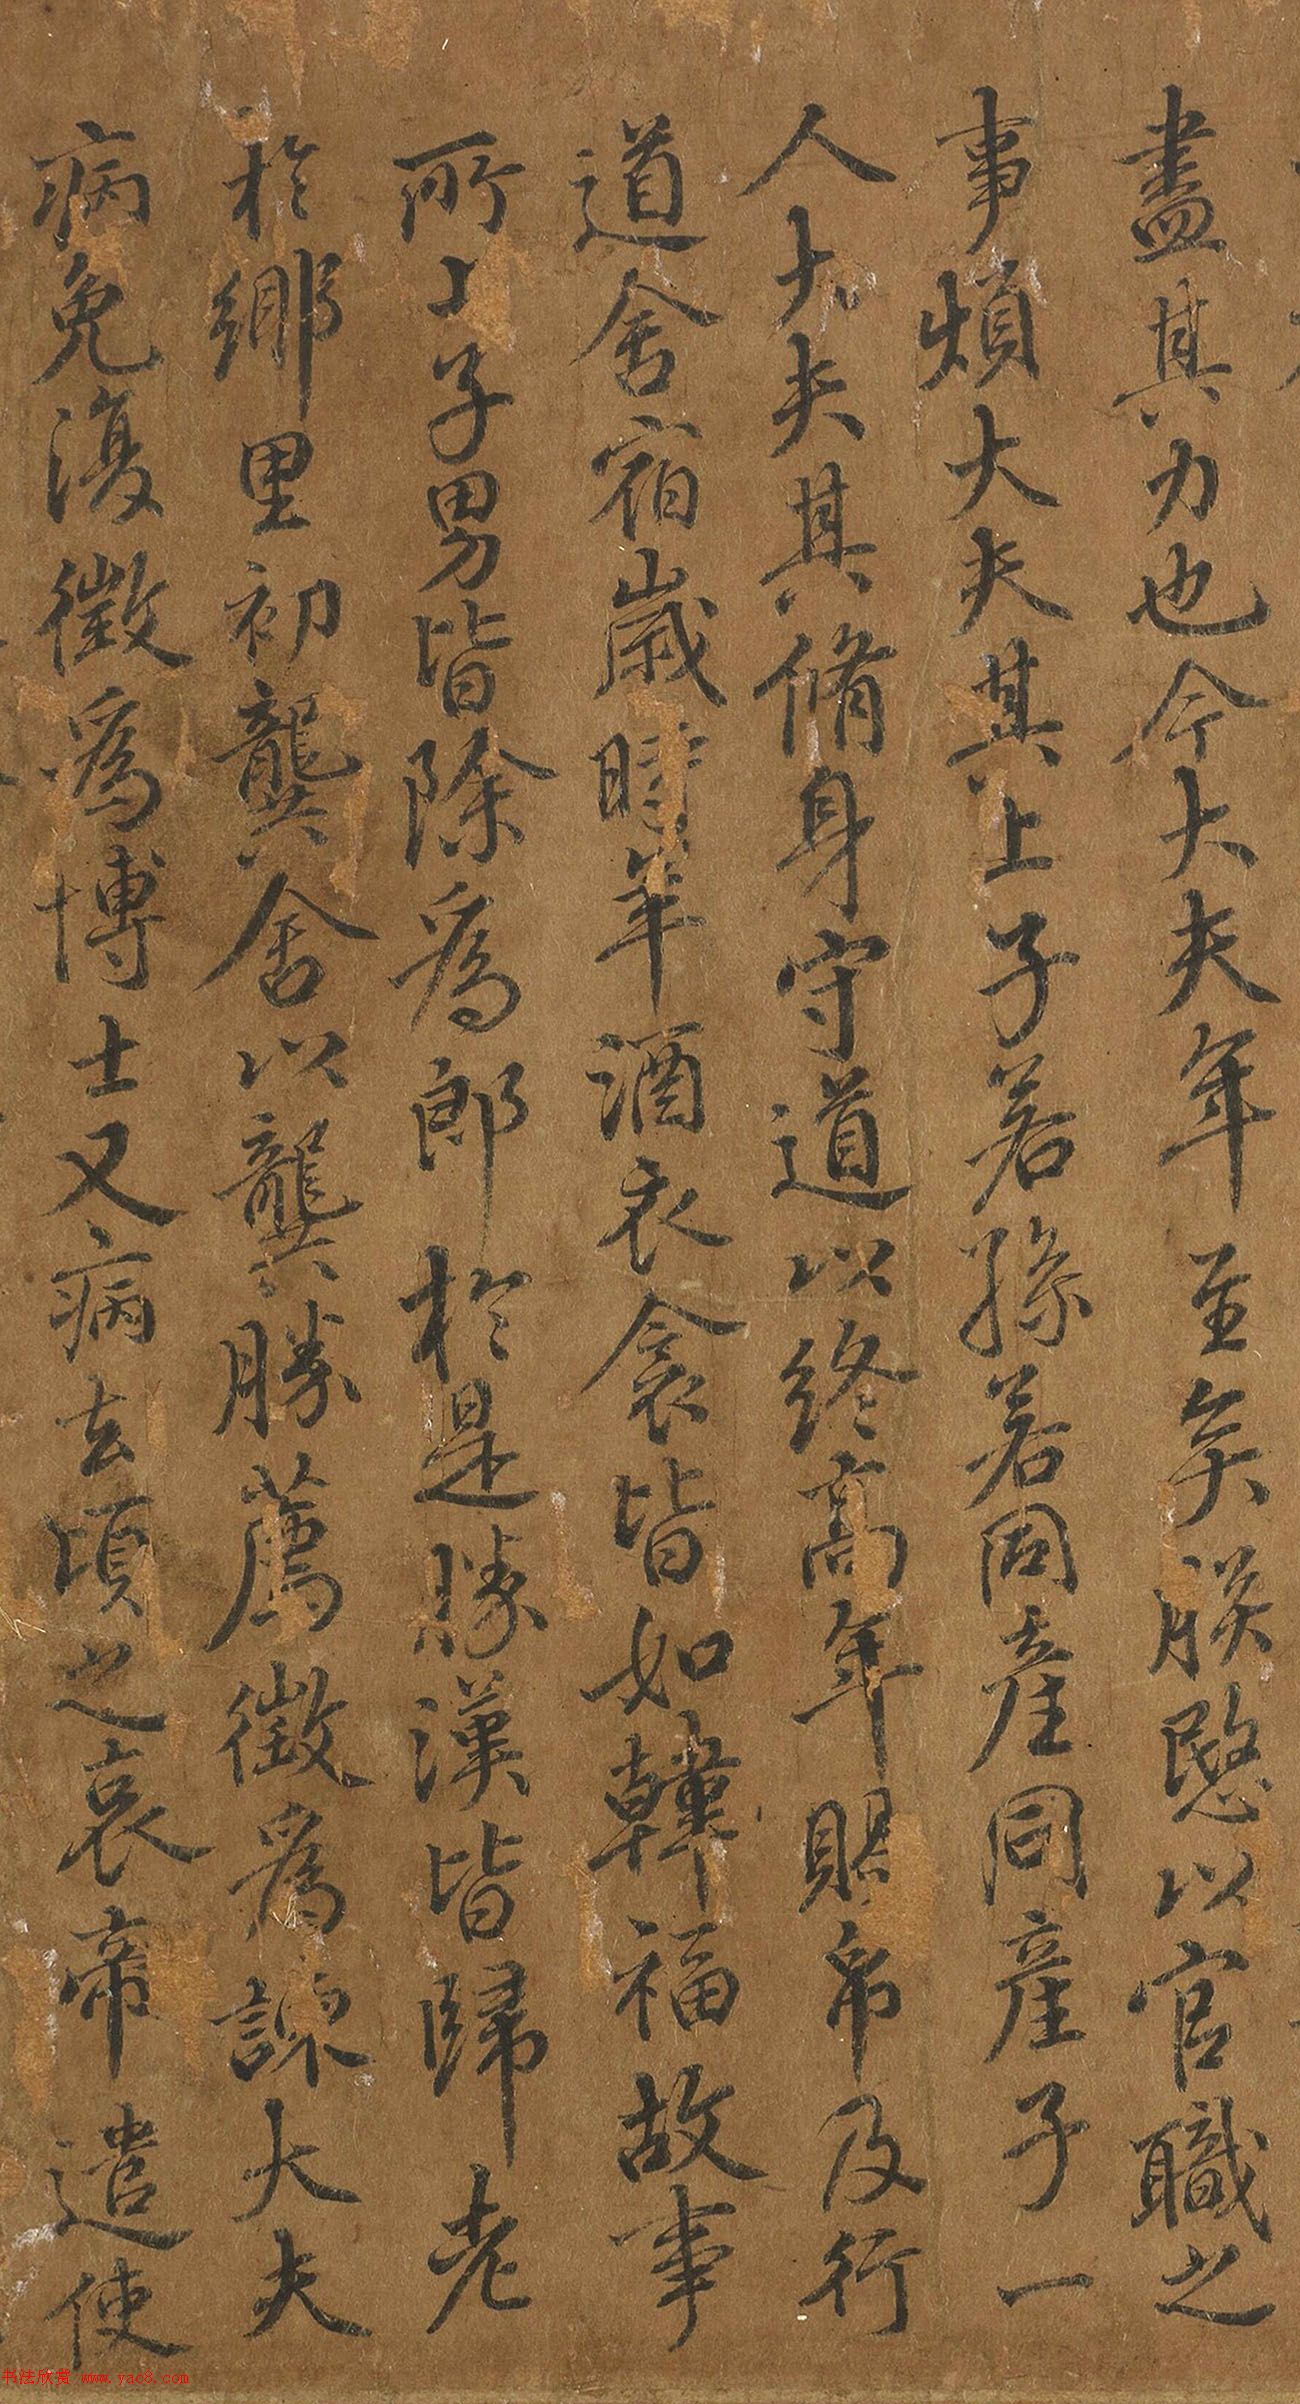 盡其力也今大夫年至矣朕愍以官職之
事煩大夫其上子若孫若同產同產子一
人大夫其脩身守道以終高年賜帛及行
道舍宿歲時羊酒衣衾皆如韓福故事
所上子男皆除為郎於是勝漢皆歸老
於鄉里初龔舍以龔勝薦徵為諫大夫
病免復徵為博士又病去頃之哀帝遣使
书法欣赏 www.yac8.com